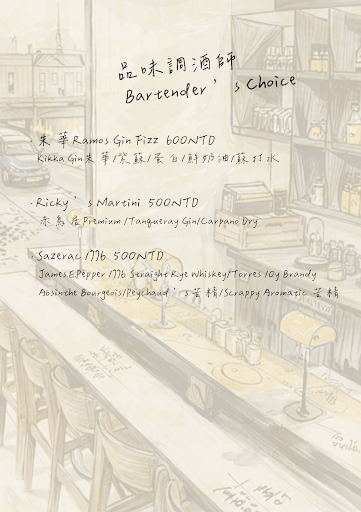 品味調酒師
Bartender's Choice
·朱華Ramos Gin Fizz 600NTD
Kikka Gin朱華/紫蘇/蛋白/鮮奶油/蘇打水
·Ricky's Martini 500NTD
赤鳥居Premium/Tanqueray Gin/Carpano Dry
·Sazerac 1776 500NTD
James E.Pepper 1776 Straight Rye Whiskey/Torres 10y Brandy
Absinthe Bourgeois/Peychaud's苦精/Scrappy Aromatic 苦精